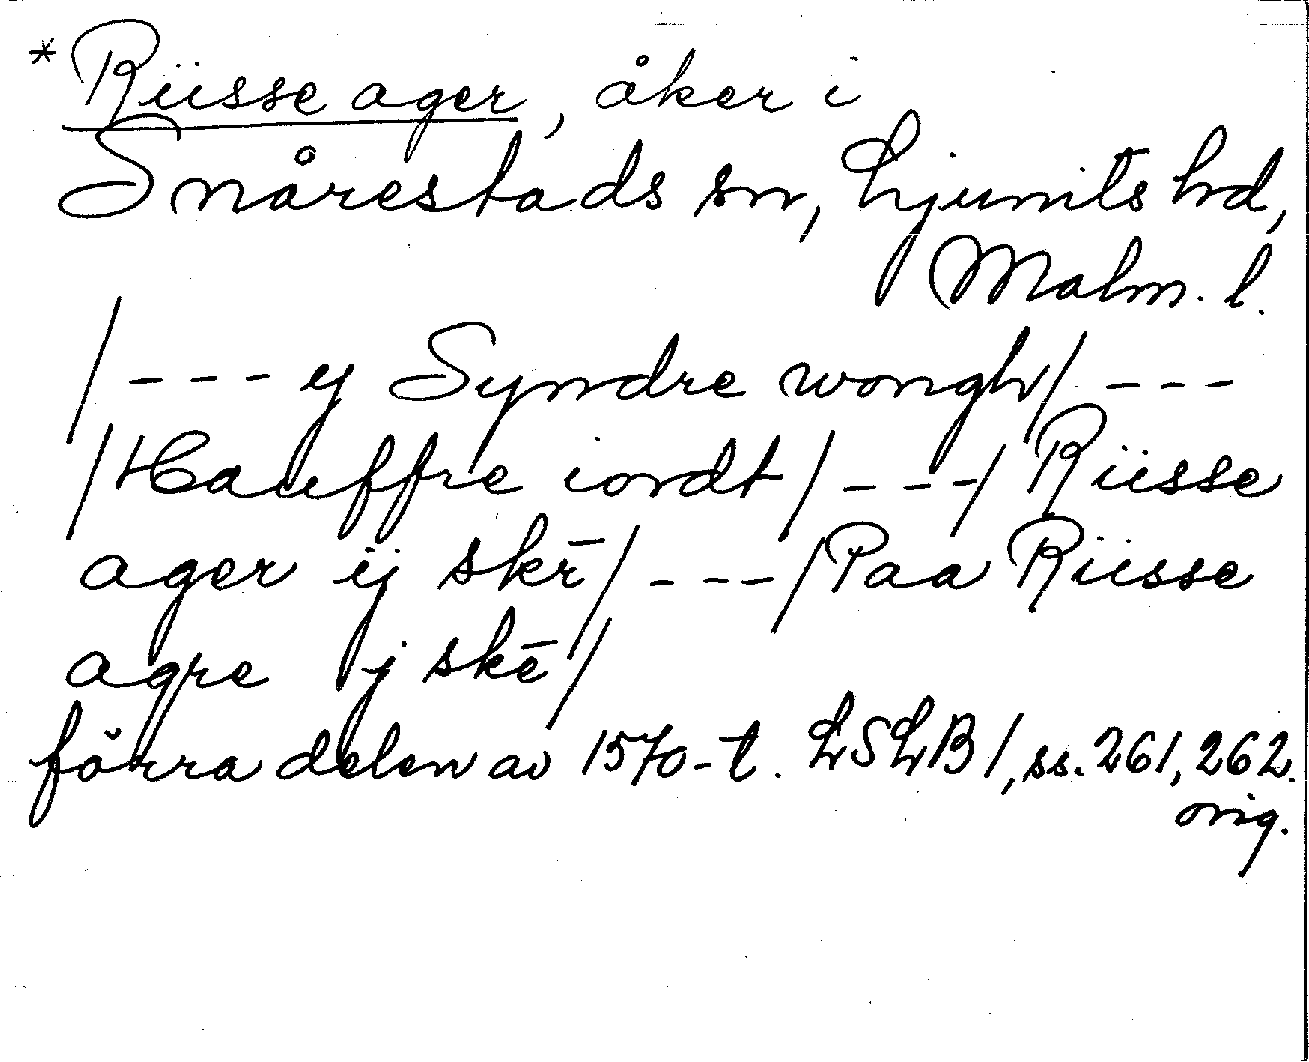 * Rüsse ager, åker i
Snårestads sn, Ljunits hd,
Malm. l.
/--- y Syndre wongh/ ---
/Hauffre iordt/ ---/ Rüsse
ager ij skē/ ---/Paa Rüsse
agre j skē/
förra delen av 1570-t. LSLB 1, ss. 261, 262.
orig.